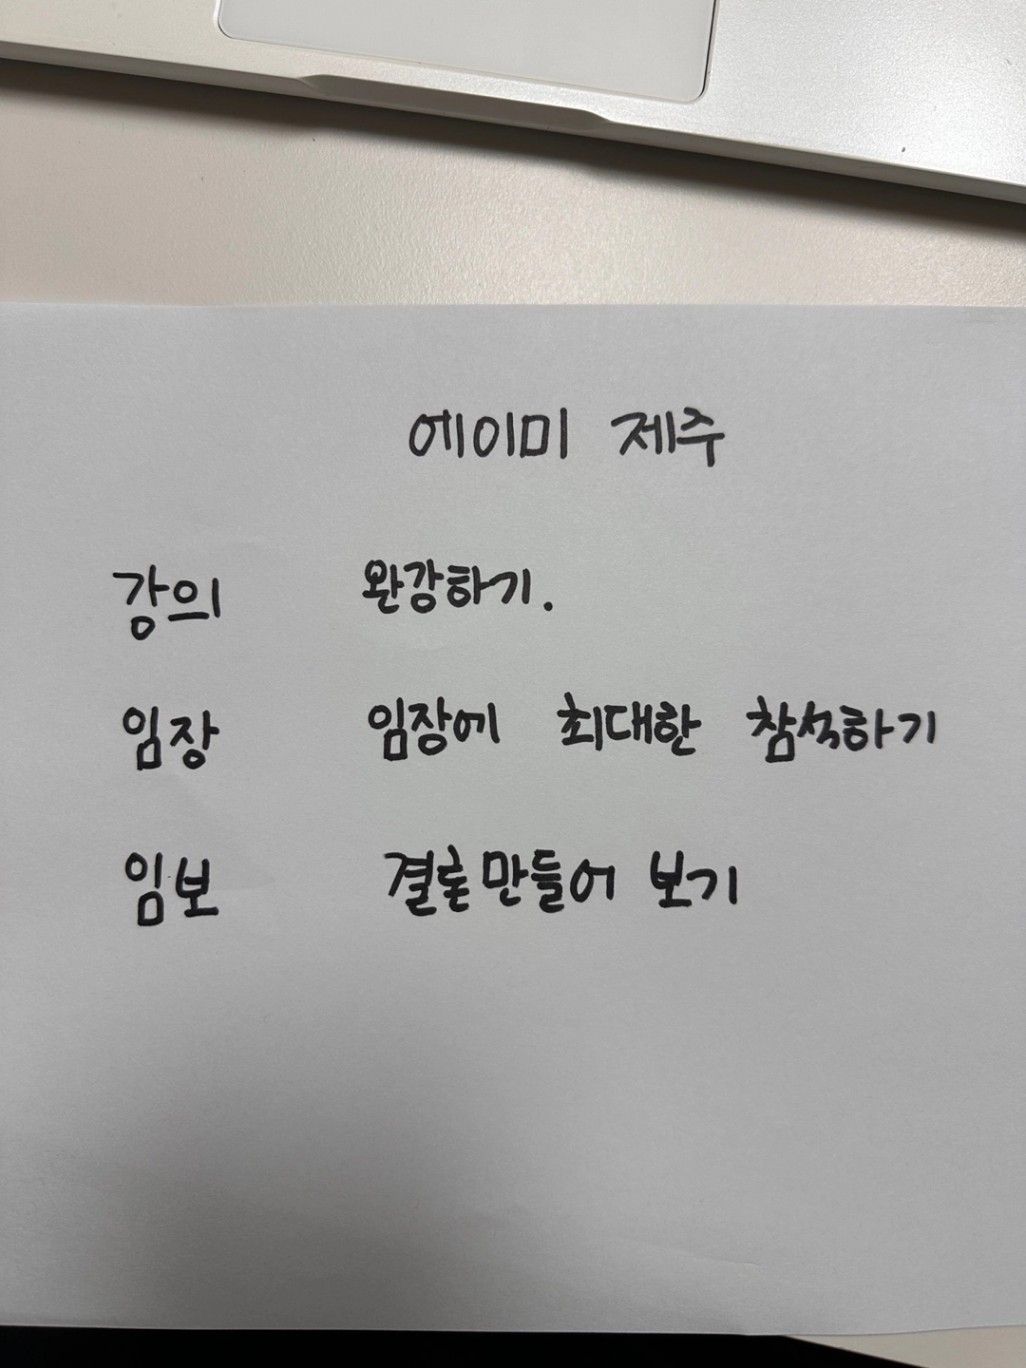 에이미 제주
강의 완강하기.
임장 임장에 최대한 참석하기
임보 결론만들어 보기